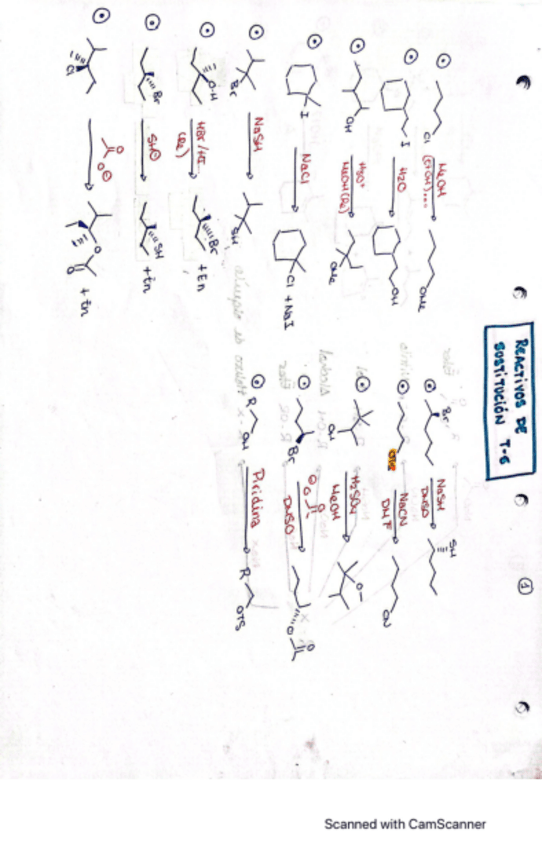 REACTIVOS DE
SUSTITUCIÓN T-6
1
Cl
MeOH
(EtOH)...
OMe
I
H2O
OH
OH
H3O+
MeOH (Δ)
OMe
I
NaCl
Cl + NaI
Br
NaSH
SH
OH
HBr/HI
Br
+ En
Br
SH⊖
SH
+ En
Cl
O
O⊖
O
O
+ En
Br
NaSH
DMSO
SH
NaCN
DMF
CN
OH
H2SO4
MeOH
O
Br
⊖O
O
DMSO
O
O
R
OH
Piridina
R
OTS
Scanned with CamScanner